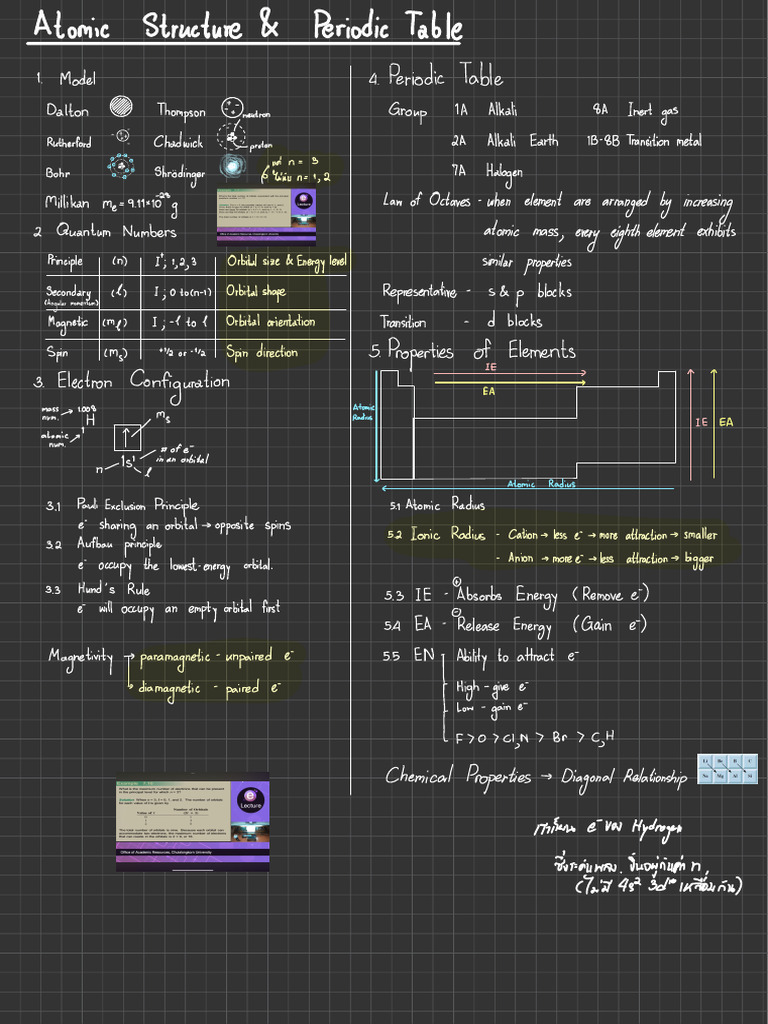 Atomic Structure & Periodic Table
1. Model
Dalton Thompson neutron
Rutherford Chadwick proton
Bohr Shrödinger
n = 3
n = 1, 2
Millikan me = 9.11×10⁻²⁸ g
2 Quantum Numbers
Principle (n) I⁺; 1, 2, 3 Orbital size & Energy level
Secondary (l) I ; 0 to (n-1) Orbital shape
(Angular momentum)
Magnetic (ml) I ; -l to l Orbital orientation
Spin (ms) +1/2 or -1/2 Spin direction
3. Electron Configuration
mass num. → 1.008
H
atomic num. 1
↑ ms
# of e⁻ in an orbital
n 1s¹ l
3.1 Pauli Exclusion Principle
e⁻ sharing an orbital → opposite spins
3.2 Aufbau principle
e⁻ occupy the lowest-energy orbital.
3.3 Hund's Rule
e⁻ will occupy an empty orbital first
Magnetivity → paramagnetic - unpaired e⁻
diamagnetic - paired e⁻
What is the maximum number of electrons that can be present
in the principal level for which n = 3?
e Lecture
Office of Academic Resources, Chulalongkorn University
4. Periodic Table
Group 1A Alkali 8A Inert gas
2A Alkali Earth 1B-8B Transition metal
7A Halogen
Law of Octaves - when element are arranged by increasing
atomic mass, every eighth element exhibits
similar properties
Representative - s & p blocks
Transition - d blocks
5. Properties of Elements
IE
EA
Atomic Radius
IE EA
Atomic Radius
5.1 Atomic Radius
5.2 Ionic Radius - Cation → less e⁻ → more attraction → smaller
- Anion → more e⁻ → less attraction → bigger
5.3 IE - ⊕ Absorbs Energy (Remove e⁻)
5.4 EA - ⊖ Release Energy (Gain e⁻)
5.5 EN Ability to attract e⁻
High - give e⁻
Low - gain e⁻
F > O > Cl, N > Br > C, H
Chemical Properties → Diagonal Relationship
Li Be B C
Na Mg Al Si
e⁻ ของ Hydrogen
ซึ่งระดับพลังงาน ขึ้นอยู่กับค่า n
(ไม่มี 4s² 3d¹⁰ เหลื่อมกัน)